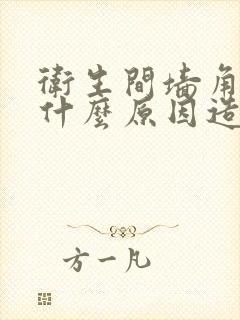 衛生間墙角
什麼原因造
方一凡